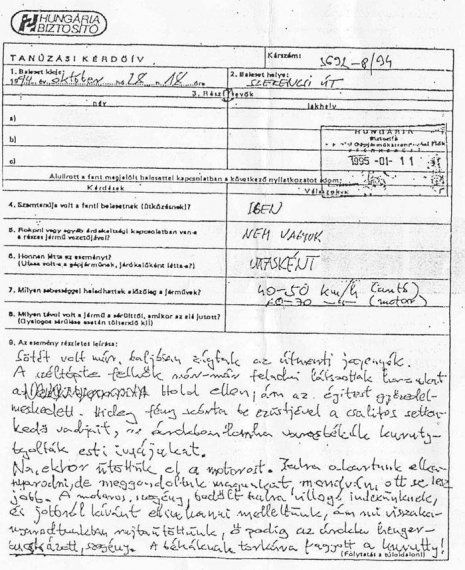 HUNGÁRIA
BIZTOSÍTÓ
TANÚZÁSI KÉRDŐÍV
Kárszám: 3692-8/94
1. Baleset ideje:
1994 év október hó 28 n 18 óra
2. Baleset helye:
SZERENCSI ÚT
3. Résztvevők
név
lakhely
a)
b)
c)
HUNGÁRIA
Biztosító
1995 -01- 11
Alulírott a fent megjelölt balesettel kapcsolatban a következő nyilatkozatot adom:
Kérdések
Válaszok
4. Szemtanúja volt a fenti balesetnek (ütközésnek)?
IGEN
5. Rokoni vagy egyéb érdekeltségi kapcsolatban van-e
a részes jármű vezetőjével?
NEM VAGYOK
6. Honnan látta az eseményt?
(Utasa volt-e a gépjárműnek, járókelőként látta-e?)
UTASKÉNT
7. Milyen sebességgel haladhattak előzőleg a járművek?
40-50 km/h (autó)
60-70 -"- (motor)
8. Milyen távol volt a jármű a sérülttől, amikor az elé jutott?
(Gyalogos sérülése esetén töltendő ki!)
9. Az esemény részletes leírása:
Sötét volt már, baljósan zúgtak az útmenti jegenyék.
A széltépte felhők már-már feladni látszottak harcukat
a Hold ellen, ám az égitest győzedel-
meskedett. Hideg fény szórta be ezüstjével a csalitos
vadjait, az árokban varangybékák kuruty-
tyolták esti imájukat.
Na, ekkor ütöttük el a motorost. Balra akartunk elkanyarodni,
de meggondoltuk magunkat, mondván, ott se lesz
jobb. A motoros, szegény, bedőlt balra villogó indexünknek,
és jobbról kívánt elsuhanni mellettünk, ám mi visszaka-
nyarodtunkban rajtaütöttünk, ő pedig az árokba henger-
bucskázott, szegény. A békáknak torkára fagyott a kurutty!
(Folytatás a túloldalon!)